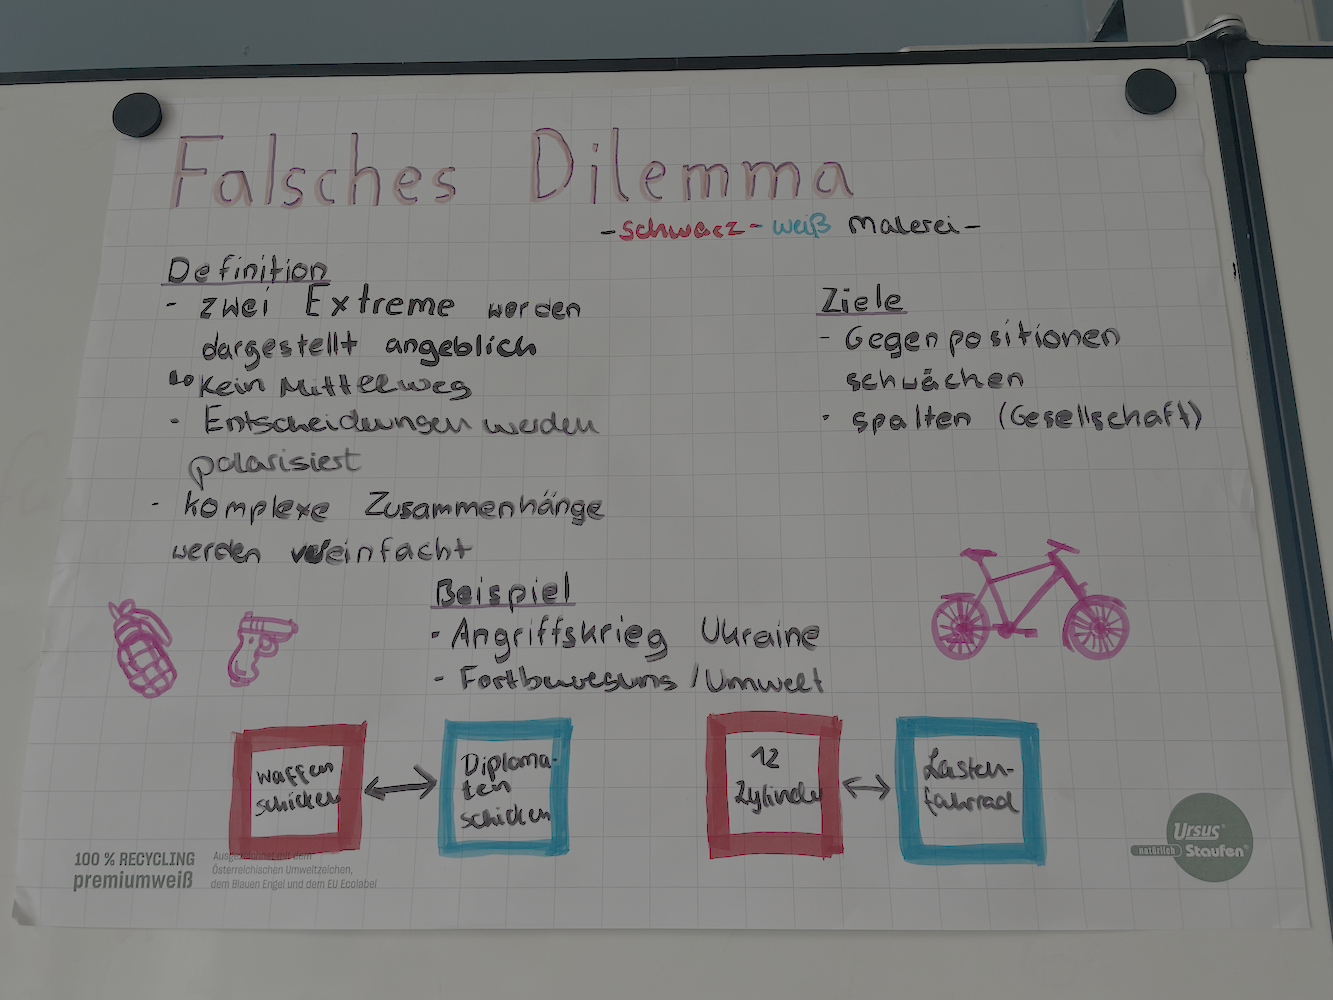 Falsches Dilemma
- schwarz - weiß Malerei -
Definition
- zwei Extreme werden
dargestellt angeblich
↳ Kein Mittelweg
- Entscheidungen werden
polarisiert
- komplexe Zusammenhänge
werden vereinfacht
Ziele
- Gegenpositionen
schwächen
- spalten (Gesellschaft)
Beispiel
- Angriffskrieg Ukraine
- Fortbewegung / Umwelt
Waffen
schicken
Diploma-
ten
schicken
12
Zylinder
Lasten-
fahrrad
100 % RECYCLING
premiumweiß
Ausgezeichnet mit dem
Österreichischen Umweltzeichen,
dem Blauen Engel und dem EU Ecolabel
Ursus®
natürlich Staufen®